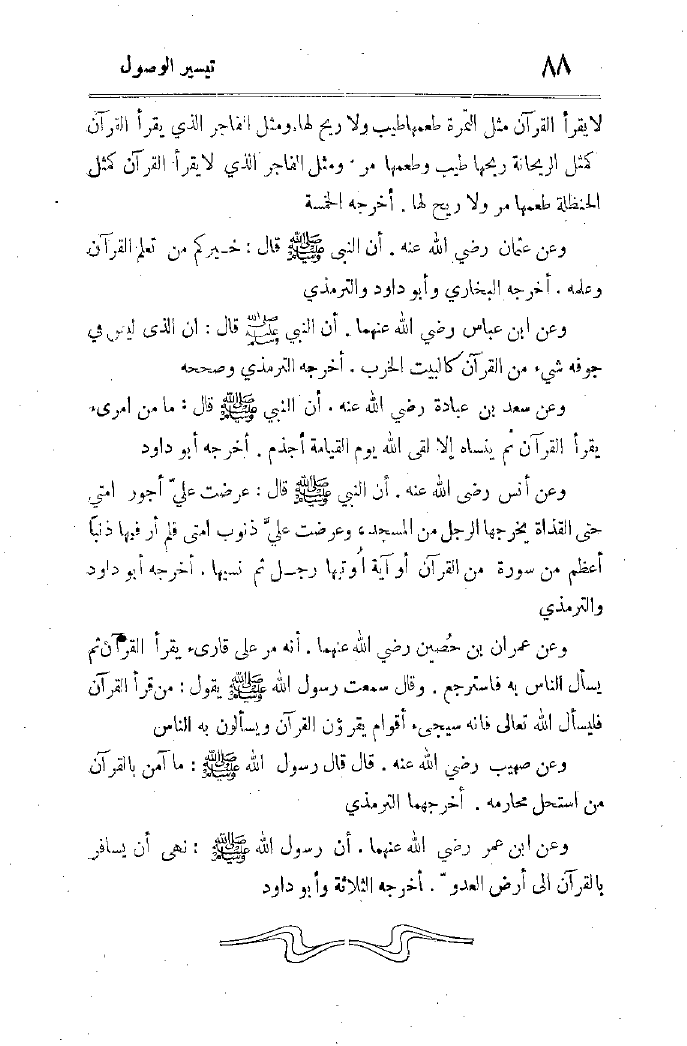 ٨٨ تيسير الوصول
لا يقرأ القرآن مثل التمرة طعمها طيب ولا ريح لها. ومثل الفاجر الذي يقرأ القرآن
كمثل الريحانة ريحها طيب وطعمها مر. ومثل الفاجر الذي لا يقرأ القرآن كمثل
الحنظلة طعمها مر ولا ريح لها. أخرجه الخمسة
وعن عثمان رضي الله عنه. أن النبى ﷺ قال: خيركم من تعلم القرآن
وعلمه. أخرجه البخاري وأبو داود والترمذي
وعن ابن عباس رضي الله عنهما. أن النبي ﷺ قال: ان الذى ليس في
جوفه شيء من القرآن كالبيت الخرب. أخرجه الترمذي وصححه
وعن سعد بن عبادة رضي الله عنه. أن النبي ﷺ قال: ما من امرىء
يقرأ القرآن ثم ينساه إلا لقى الله يوم القيامة أجذم. أخرجه أبو داود
وعن أنس رضى الله عنه. أن النبي ﷺ قال: عرضت عليّ أجور امتي
حتى القذاة يخرجها الرجل من المسجد، وعرضت عليَّ ذنوب امتى فلم أر فيها ذنبًا
أعظم من سورة من القرآن أو آية أُوتيها رجل ثم نسيها. أخرجه أبو داود
والترمذي
وعن عمران بن حُصين رضي الله عنهما. أنه مر على قارىء يقرأ القرآن ثم
يسأل الناس به فاسترجع. وقال سمعت رسول الله ﷺ يقول: من قرأ القرآن
فليسأل الله تعالى فانه سيجىء أقوام يقرؤن القرآن ويسألون به الناس
وعن صهيب رضي الله عنه. قال قال رسول الله ﷺ: ما آمن بالقرآن
من استحل محارمه. أخرجهما الترمذي
وعن ابن عمر رضي الله عنهما. أن رسول الله ﷺ: نهى أن يسافر
بالقرآن الى أرض العدوّ. أخرجه الثلاثة وأبو داود